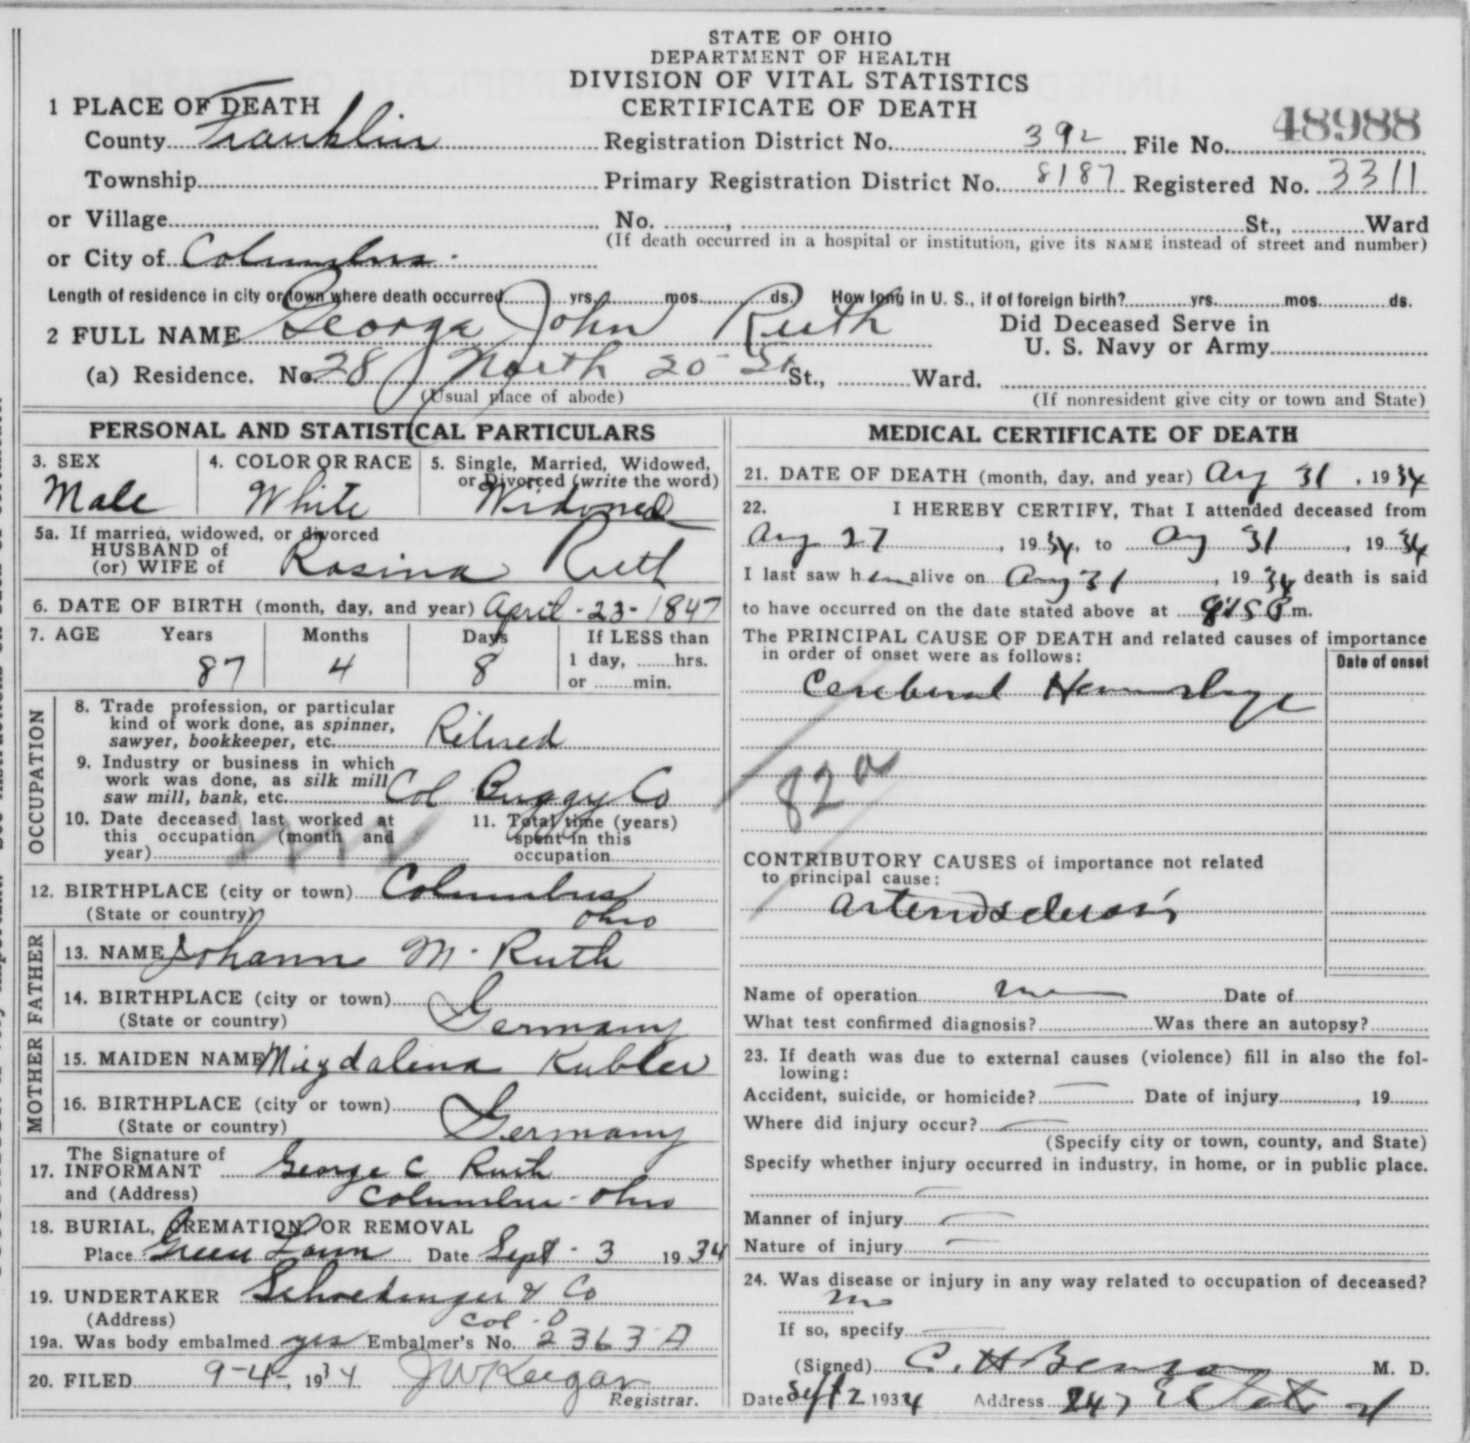 STATE OF OHIO
DEPARTMENT OF HEALTH
DIVISION OF VITAL STATISTICS
CERTIFICATE OF DEATH
1 PLACE OF DEATH
County Franklin Registration District No. 392 File No. 48988
Township Primary Registration District No. 8187 Registered No. 3311
or Village No. , St., Ward
(If death occurred in a hospital or institution, give its NAME instead of street and number)
or City of Columbus
Length of residence in city or town where death occurred yrs. mos. ds. How long in U. S., if of foreign birth? yrs. mos. ds.
2 FULL NAME George John Ruth Did Deceased Serve in U. S. Navy or Army
(a) Residence. No. 28 North 20 St St., Ward.
(Usual place of abode) (If nonresident give city or town and State)
PERSONAL AND STATISTICAL PARTICULARS
3. SEX Male
4. COLOR OR RACE White
5. Single, Married, Widowed, or Divorced (write the word) Widowed
5a. If married, widowed, or divorced
HUSBAND of
(or) WIFE of Rosina Ruth
6. DATE OF BIRTH (month, day, and year) April-23-1847
7. AGE Years Months Days If LESS than
87 4 8 1 day, hrs.
or min.
OCCUPATION
8. Trade profession, or particular
kind of work done, as spinner,
sawyer, bookkeeper, etc. Retired
9. Industry or business in which
work was done, as silk mill
saw mill, bank, etc. Col Buggy Co
10. Date deceased last worked at
this occupation (month and
year)
11. Total time (years)
spent in this
occupation
12. BIRTHPLACE (city or town) Columbus
(State or country) Ohio
FATHER
13. NAME Johann M. Ruth
14. BIRTHPLACE (city or town)
(State or country) Germany
MOTHER
15. MAIDEN NAME Magdalena Kubler
16. BIRTHPLACE (city or town)
(State or country) Germany
The Signature of
17. INFORMANT George C Ruth
and (Address) Columbus-Ohio
18. BURIAL, CREMATION OR REMOVAL
Place Green Lawn Date Sept-3 1934
19. UNDERTAKER Schoedinger & Co
(Address) Col-O
19a. Was body embalmed yes Embalmer's No. 2363 A
20. FILED 9-4-, 1934 JW Keegan
Registrar.
MEDICAL CERTIFICATE OF DEATH
21. DATE OF DEATH (month, day, and year) Aug 31, 1934
22. I HEREBY CERTIFY, That I attended deceased from
Aug 27, 1934, to Aug 31, 1934
I last saw him alive on Aug 31, 1934 death is said
to have occurred on the date stated above at 9:15 P.m.
The PRINCIPAL CAUSE OF DEATH and related causes of importance
in order of onset were as follows: Date of onset
Cerebral Hemorrhage
82a
CONTRIBUTORY CAUSES of importance not related
to principal cause:
Arteriosclerosis
Name of operation Date of
What test confirmed diagnosis? Was there an autopsy?
23. If death was due to external causes (violence) fill in also the fol-
lowing:
Accident, suicide, or homicide? Date of injury , 19
Where did injury occur?
(Specify city or town, county, and State)
Specify whether injury occurred in industry, in home, or in public place.
Manner of injury
Nature of injury
24. Was disease or injury in any way related to occupation of deceased?
no
If so, specify
(Signed) C. H Benson M. D.
Date Sept 2 1934 Address 247 E State St